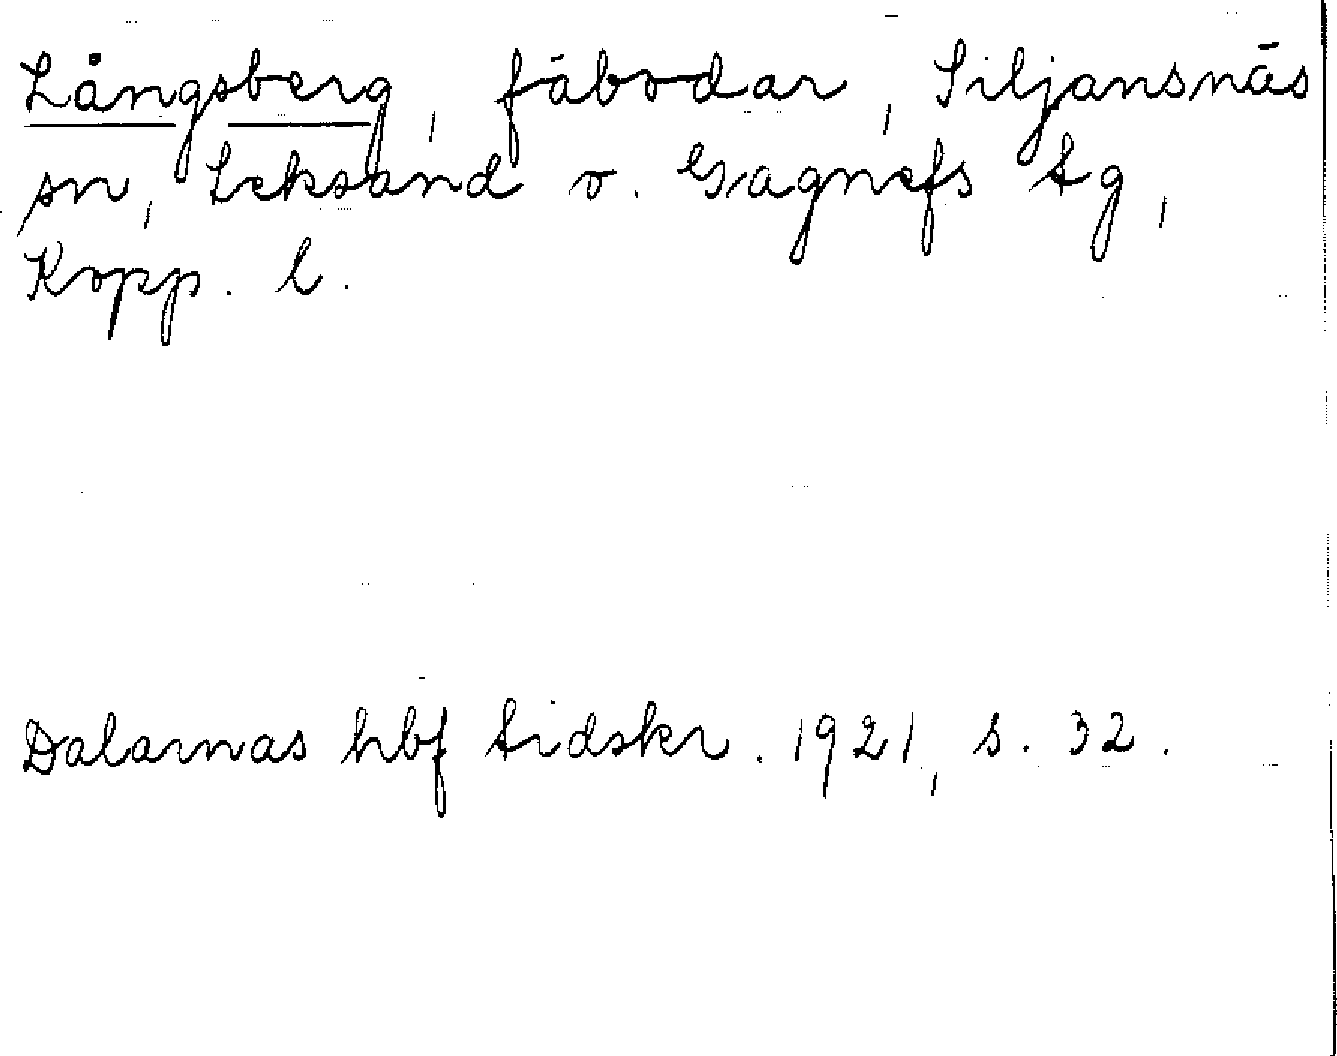 Långsberg, fäbodar, Siljansnäs
sn, Leksand o. Gagnefs tg,
Kopp. l.
Dalarnas hbf tidskr. 1921, s. 32.